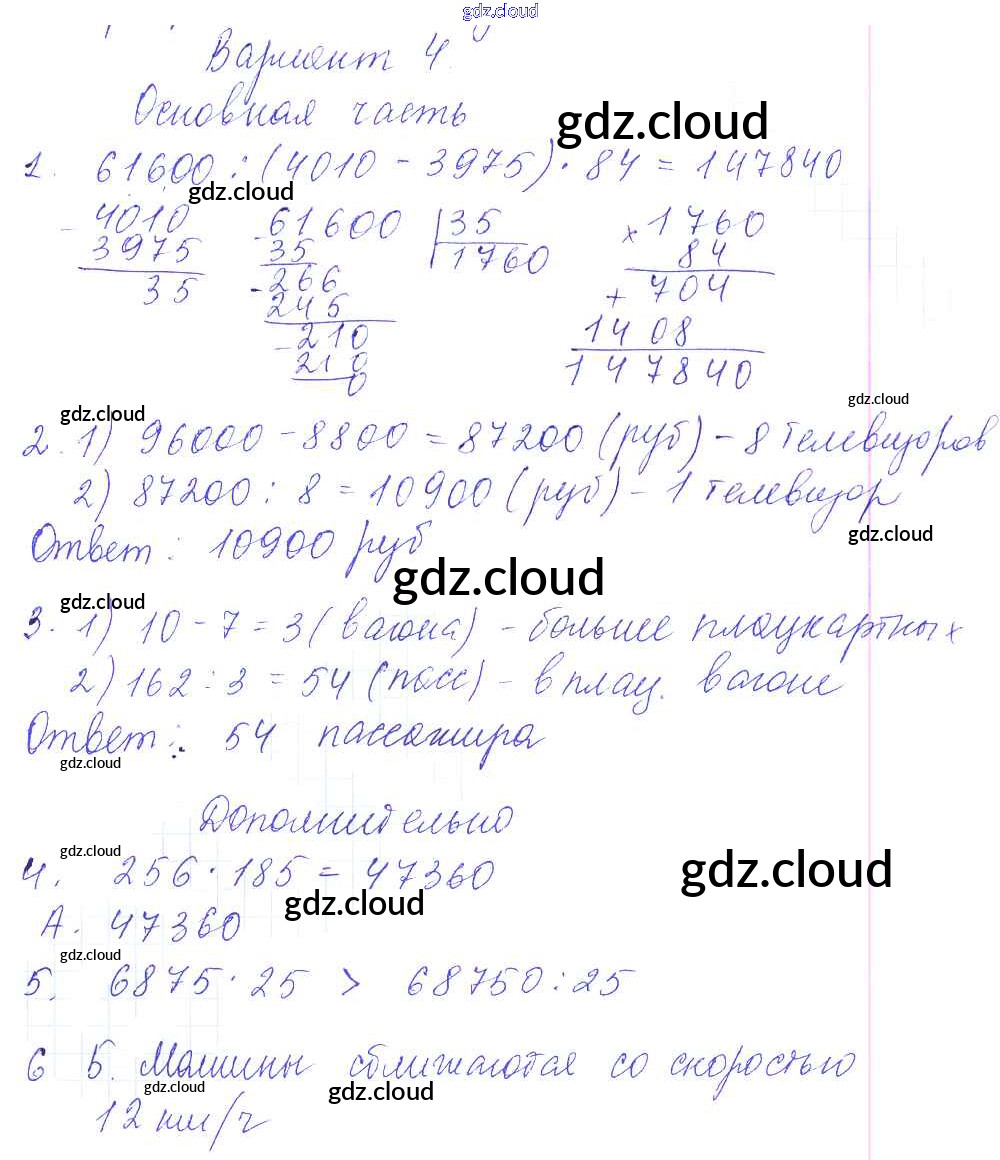 gdz.cloud
Вариант 4.
Основная часть
gdz.cloud
1. 61600 : (4010 - 3975) · 84 = 147840
gdz.cloud
- 4010 - 61600 | 35 × 1760
3975 35 1760 84
35 - 266 + 704
245 1408
- 210 147840
210
0
gdz.cloud gdz.cloud
2. 1) 96000 - 8800 = 87200 (руб) - 8 телевизоров
2) 87200 : 8 = 10900 (руб) - 1 телевизор
gdz.cloud
Ответ : 10900 руб
gdz.cloud
gdz.cloud
3. 1) 10 - 7 = 3 (вагона) - больше плацкартных
2) 162 : 3 = 54 (пасс) - в плац. вагоне
Ответ : 54 пассажира
gdz.cloud
Дополнительно
gdz.cloud gdz.cloud
4. 256 · 185 = 47360
gdz.cloud
А. 47360
gdz.cloud
5. 6875 · 25 > 68750 : 25
6 Б. Машины сближаются со скоростью
gdz.cloud gdz.cloud
12 км/ч